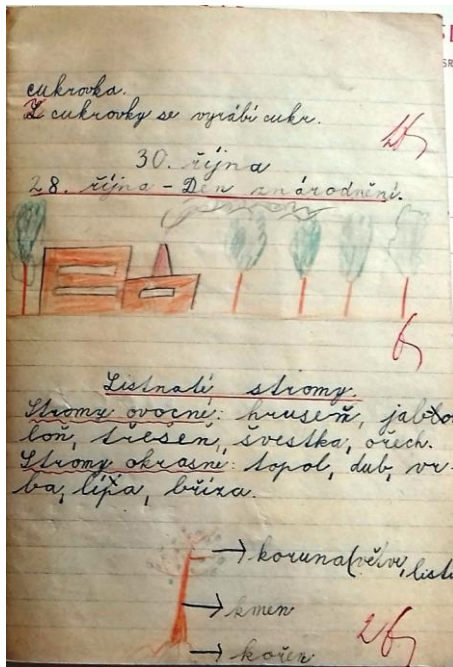 cukrovka.
Z cukrovky se vyrábí cukr.
30. října
28. října - Den znárodnění.
Listnaté stromy.
Stromy ovocné: hrušeň, jab-
loň, třešeň, švestka, ořech.
Stromy okrasné: topol, dub, vr-
ba, lípa, bříza.
koruna (větve, listí
kmen
kořen